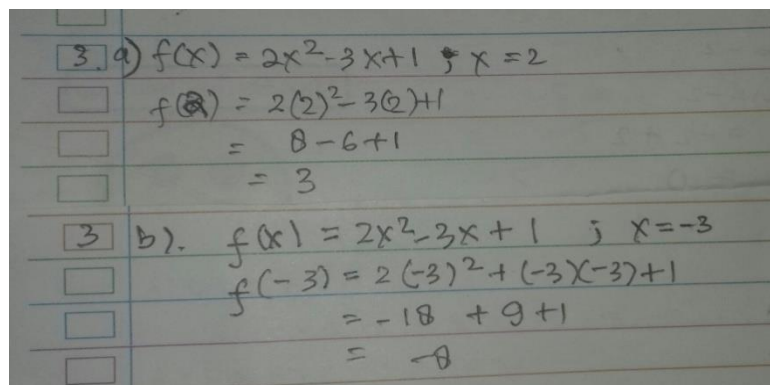 3. a) f(x) = 2x² - 3x + 1 ; x = 2
f(2) = 2(2)² - 3(2) + 1
= 8 - 6 + 1
= 3
3 b). f(x) = 2x² - 3x + 1 ; x = -3
f(-3) = 2(-3)² + (-3)(-3) + 1
= -18 + 9 + 1
= -8